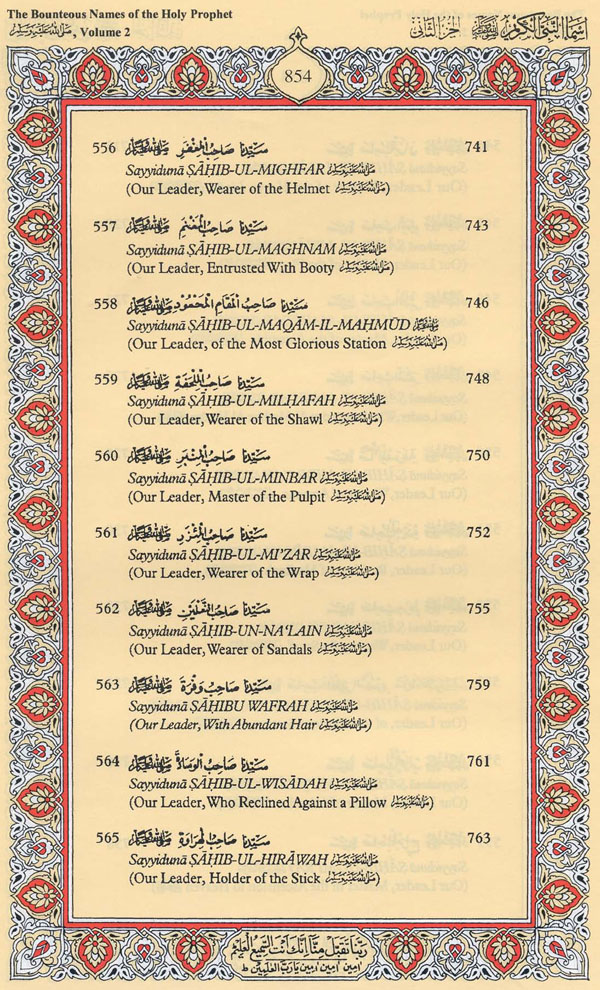 The Bounteous Names of the Holy Prophet
ﷺ, Volume 2
اسماء النبی الکریم ﷺ الجزء الثانی
854
556 سَيِّدُنَا صَاحِبُ الْمِغْفَرِ ﷺ 741
Sayyidunā ṢĀḤIB-UL-MIGHFAR ﷺ
(Our Leader, Wearer of the Helmet ﷺ)
557 سَيِّدُنَا صَاحِبُ الْمَغْنَمِ ﷺ 743
Sayyidunā ṢĀḤIB-UL-MAGHNAM ﷺ
(Our Leader, Entrusted With Booty ﷺ)
558 سَيِّدُنَا صَاحِبُ الْمَقَامِ الْمَحْمُوْدِ ﷺ 746
Sayyidunā ṢĀḤIB-UL-MAQĀM-IL-MAḤMŪD ﷺ
(Our Leader, of the Most Glorious Station ﷺ)
559 سَيِّدُنَا صَاحِبُ الْمِلْحَفَةِ ﷺ 748
Sayyidunā ṢĀḤIB-UL-MILḤAFAH ﷺ
(Our Leader, Wearer of the Shawl ﷺ)
560 سَيِّدُنَا صَاحِبُ الْمِنْبَرِ ﷺ 750
Sayyidunā ṢĀḤIB-UL-MINBAR ﷺ
(Our Leader, Master of the Pulpit ﷺ)
561 سَيِّدُنَا صَاحِبُ الْمِئْزَرِ ﷺ 752
Sayyidunā ṢĀḤIB-UL-MI’ZAR ﷺ
(Our Leader, Wearer of the Wrap ﷺ)
562 سَيِّدُنَا صَاحِبُ النَّعْلَيْنِ ﷺ 755
Sayyidunā ṢĀḤIB-UN-NA‘LAIN ﷺ
(Our Leader, Wearer of Sandals ﷺ)
563 سَيِّدُنَا صَاحِبُ وَفْرَةٍ ﷺ 759
Sayyidunā ṢĀḤIBU WAFRAH ﷺ
(Our Leader, With Abundant Hair ﷺ)
564 سَيِّدُنَا صَاحِبُ الْوِسَادَةِ ﷺ 761
Sayyidunā ṢĀḤIB-UL-WISĀDAH ﷺ
(Our Leader, Who Reclined Against a Pillow ﷺ)
565 سَيِّدُنَا صَاحِبُ الْهِرَاوَةِ ﷺ 763
Sayyidunā ṢĀḤIB-UL-HIRĀWAH ﷺ
(Our Leader, Holder of the Stick ﷺ)
رَبَّنَا تَقَبَّلْ مِنَّا اِنَّكَ اَنْتَ السَّمِيْعُ الْعَلِيْمُ
امين امين امين يارب العلمين ط